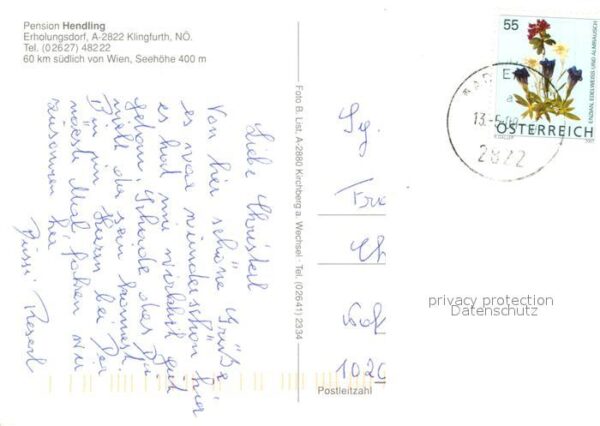 Pension Hendling
Erholungsdorf, A-2822 Klingfurth, NÖ.
Tel. (02627) 48222
60 km südlich von Wien, Seehöhe 400 m
Liebe Christerl
Von hier schöne Grüße
es war wunderschön hier
es hat mir wirklich gut
getan, Schade das Du
nicht da sein konntest.
Bin im Kurm bei Dir
nächste Mal fahren wir
zusammen her
Bussi Reserl
Foto B. List, A-2880 Kirchberg a. Wechsel · Tel. (02641) 2334
Sg.
Fra
Ch
1020
Postleitzahl
55
ENZIAN, EDELWEISS UND ALMRAUSCH
ÖSTERREICH
2007
13.-5.
a
2822
privacy protection
Datenschutz